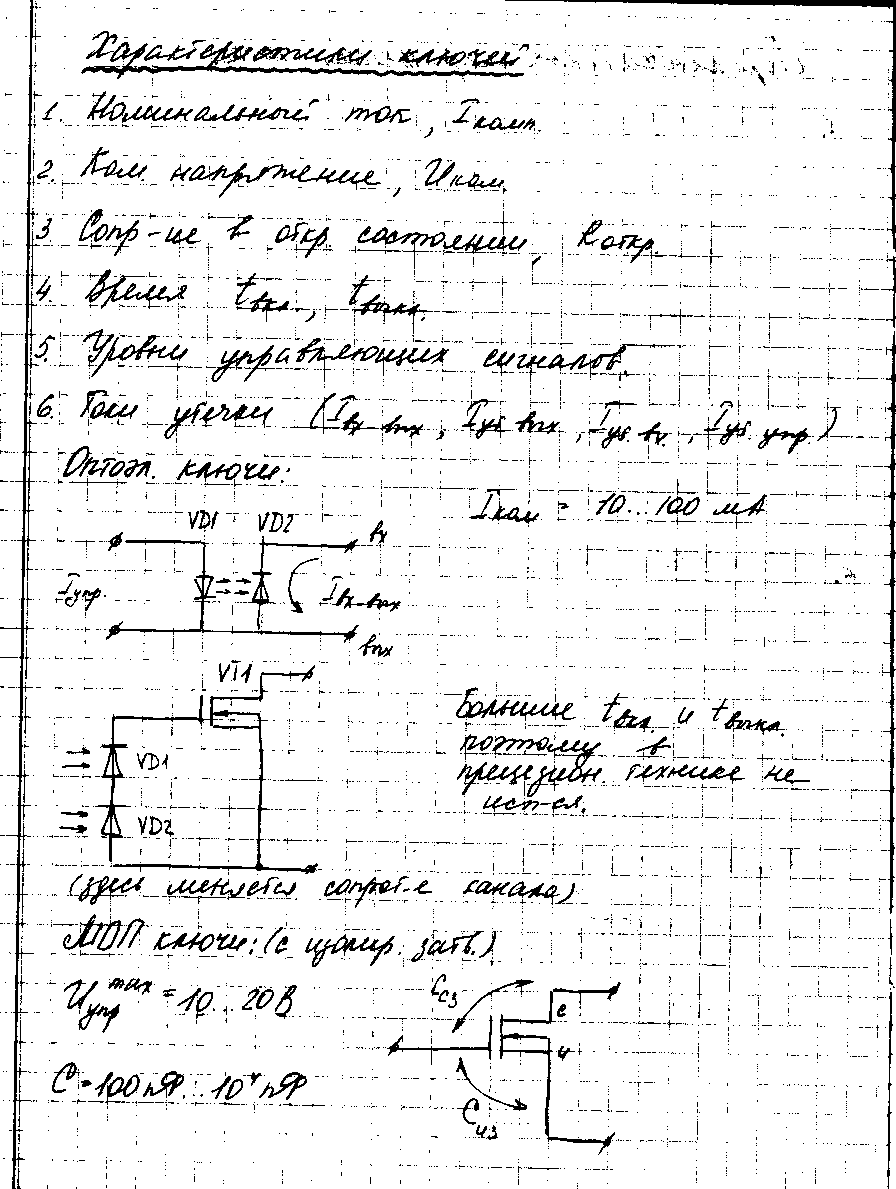 Характеристики ключей
1. Номинальный ток, Iкомт.
2. Ком напряжение, Uком.
3 Сопр-ие в откр. состоянии, Rоткр.
4 Время tвкл., tвыкл.
5. Уровни управляющих сигналов.
6. Токи утечки (Iвх-вых, Iут вых, Iут. вх., Iут. упр.)
Оптоэл. ключи:
Iком = 10...100 мА
VD1 VD2 вх
Iупр. Iвх-вых
вых
VT1
VD1
VD2
Большие tвкл. и tвыкл.
поэтому в
прецезион. технике не
исп-ся.
(здесь меняется сопрот-е канала)
МОП ключи: (с изолир. затв.)
Uупр max = 10...20В
C = 100пФ...10⁴ пФ
Cсз
с
и
Cиз